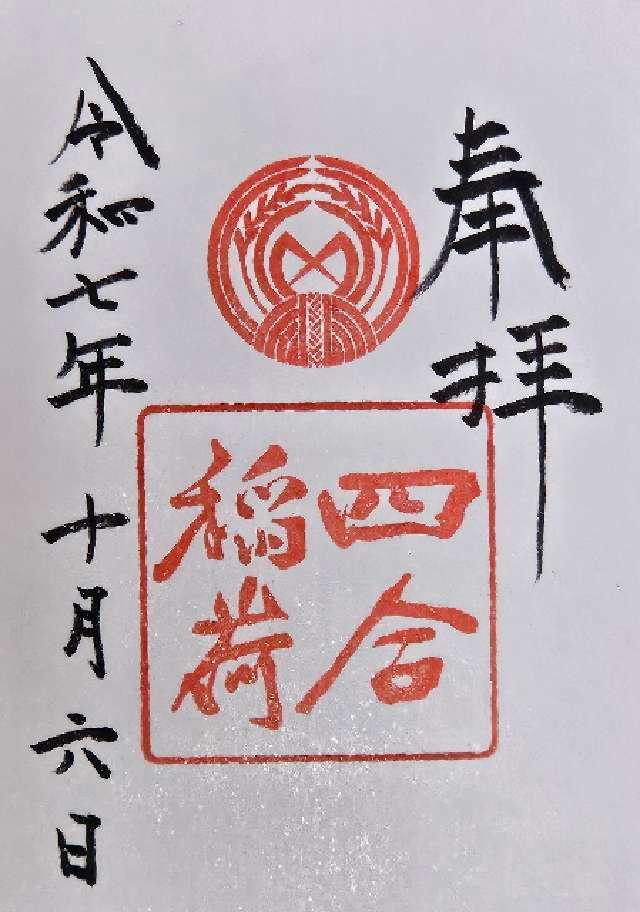 奉拝
四合
稲荷
令和七年十月六日